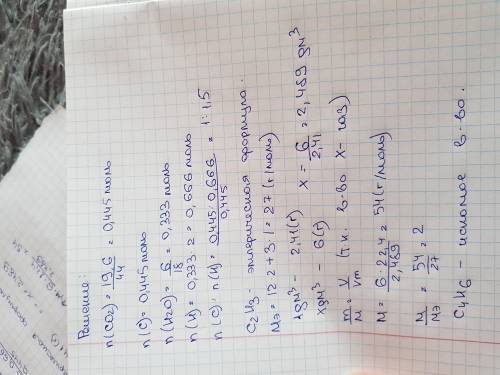 Решение:
n(CO2) = 19,6/44 = 0,445 моль
n(C) = 0,445 моль
n(H2O) = 6/18 = 0,333 моль
n(H) = 0,333·2 = 0,666 моль
n(C) : n(H) = 0,445 : 0,666/0,445 = 1 : 1,5
C2H3 - эмперическая формула.
Mэ = 12·2 + 3·1 = 27 (г/моль)
1дм³ - 2,41(г)
xдм³ - 6(г)
x = 6/2,41 = 2,489 дм³
m/M = V/Vm (т.к. в-во x - газ)
M = 6·22,4/2,489 = 54 (г/моль)
M/Mэ = 54/27 = 2
C4H6 - искомое в-во.